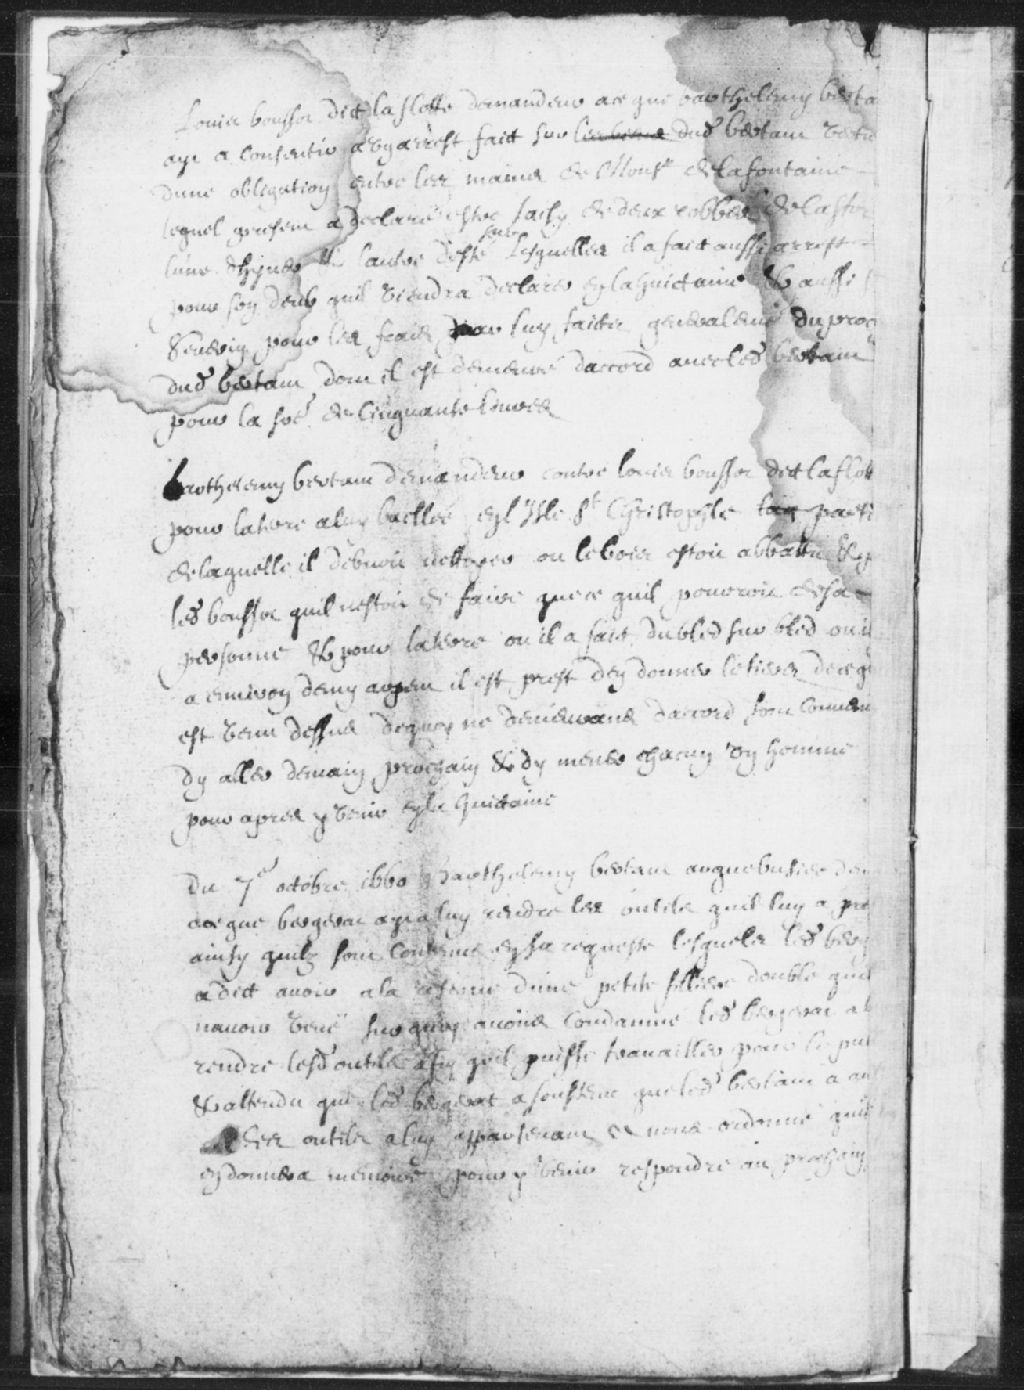 Louis boussot dict la flotte demandeur a ce que barthelemy berta
ayt a consentir a ung arrest faict sur les biens dud bertam
dune obligation entre les mains de Mons.r de la fontaine
lequel present a declaré estre saisy de deux robbes de la
lune d'hyver l'autre desté sur lesquelles il a faict aussi arrest
pour son deub quil viendra declarer en la huictaine & aussi
pour les frais par luy faits generalemt du proc
dud bertam dont il est demeuré daccord avec led bertam
pour la so.e de cinquante livres
barthelemy bertam demandeur contre louis boussot dict la flott
pour la terre a luy baillée en l'Isle St Christophle
de laquelle il debvoit nettoyer ou le bois estoit abbattu &
led boussot quil nestoit de faire que ce quil pourroit de sa
personne & pour la terre ou il a fait du bled sur bled ou il
a environ demy arpen il est prest den donner le tiers de ce q
est venu dessus dequoy ne demeurans daccord sont conven
dy aller demain prochain & dy mener chacun un homme
pour apres y venir en la huictaine
Du 7e octobre 1660 Barthelemy bertam arquebusier de
a ce que bergerat ayt a luy rendre les outils quil luy a pre
ainsy quilz sont contenus en sa requeste lesquels led berg
a dict avoir a la reserve dune petite filliere double quil
navoir veue sur quoy avons condamné led bergerat a l
rendre lesd outils afin quil puisse travailler pour le pu
& attendu que led bergerat a soustenu que led bertam a au
des outils a luy appartenant nous ordonné quil
en donnera memoire pour y venir respondre au prochain